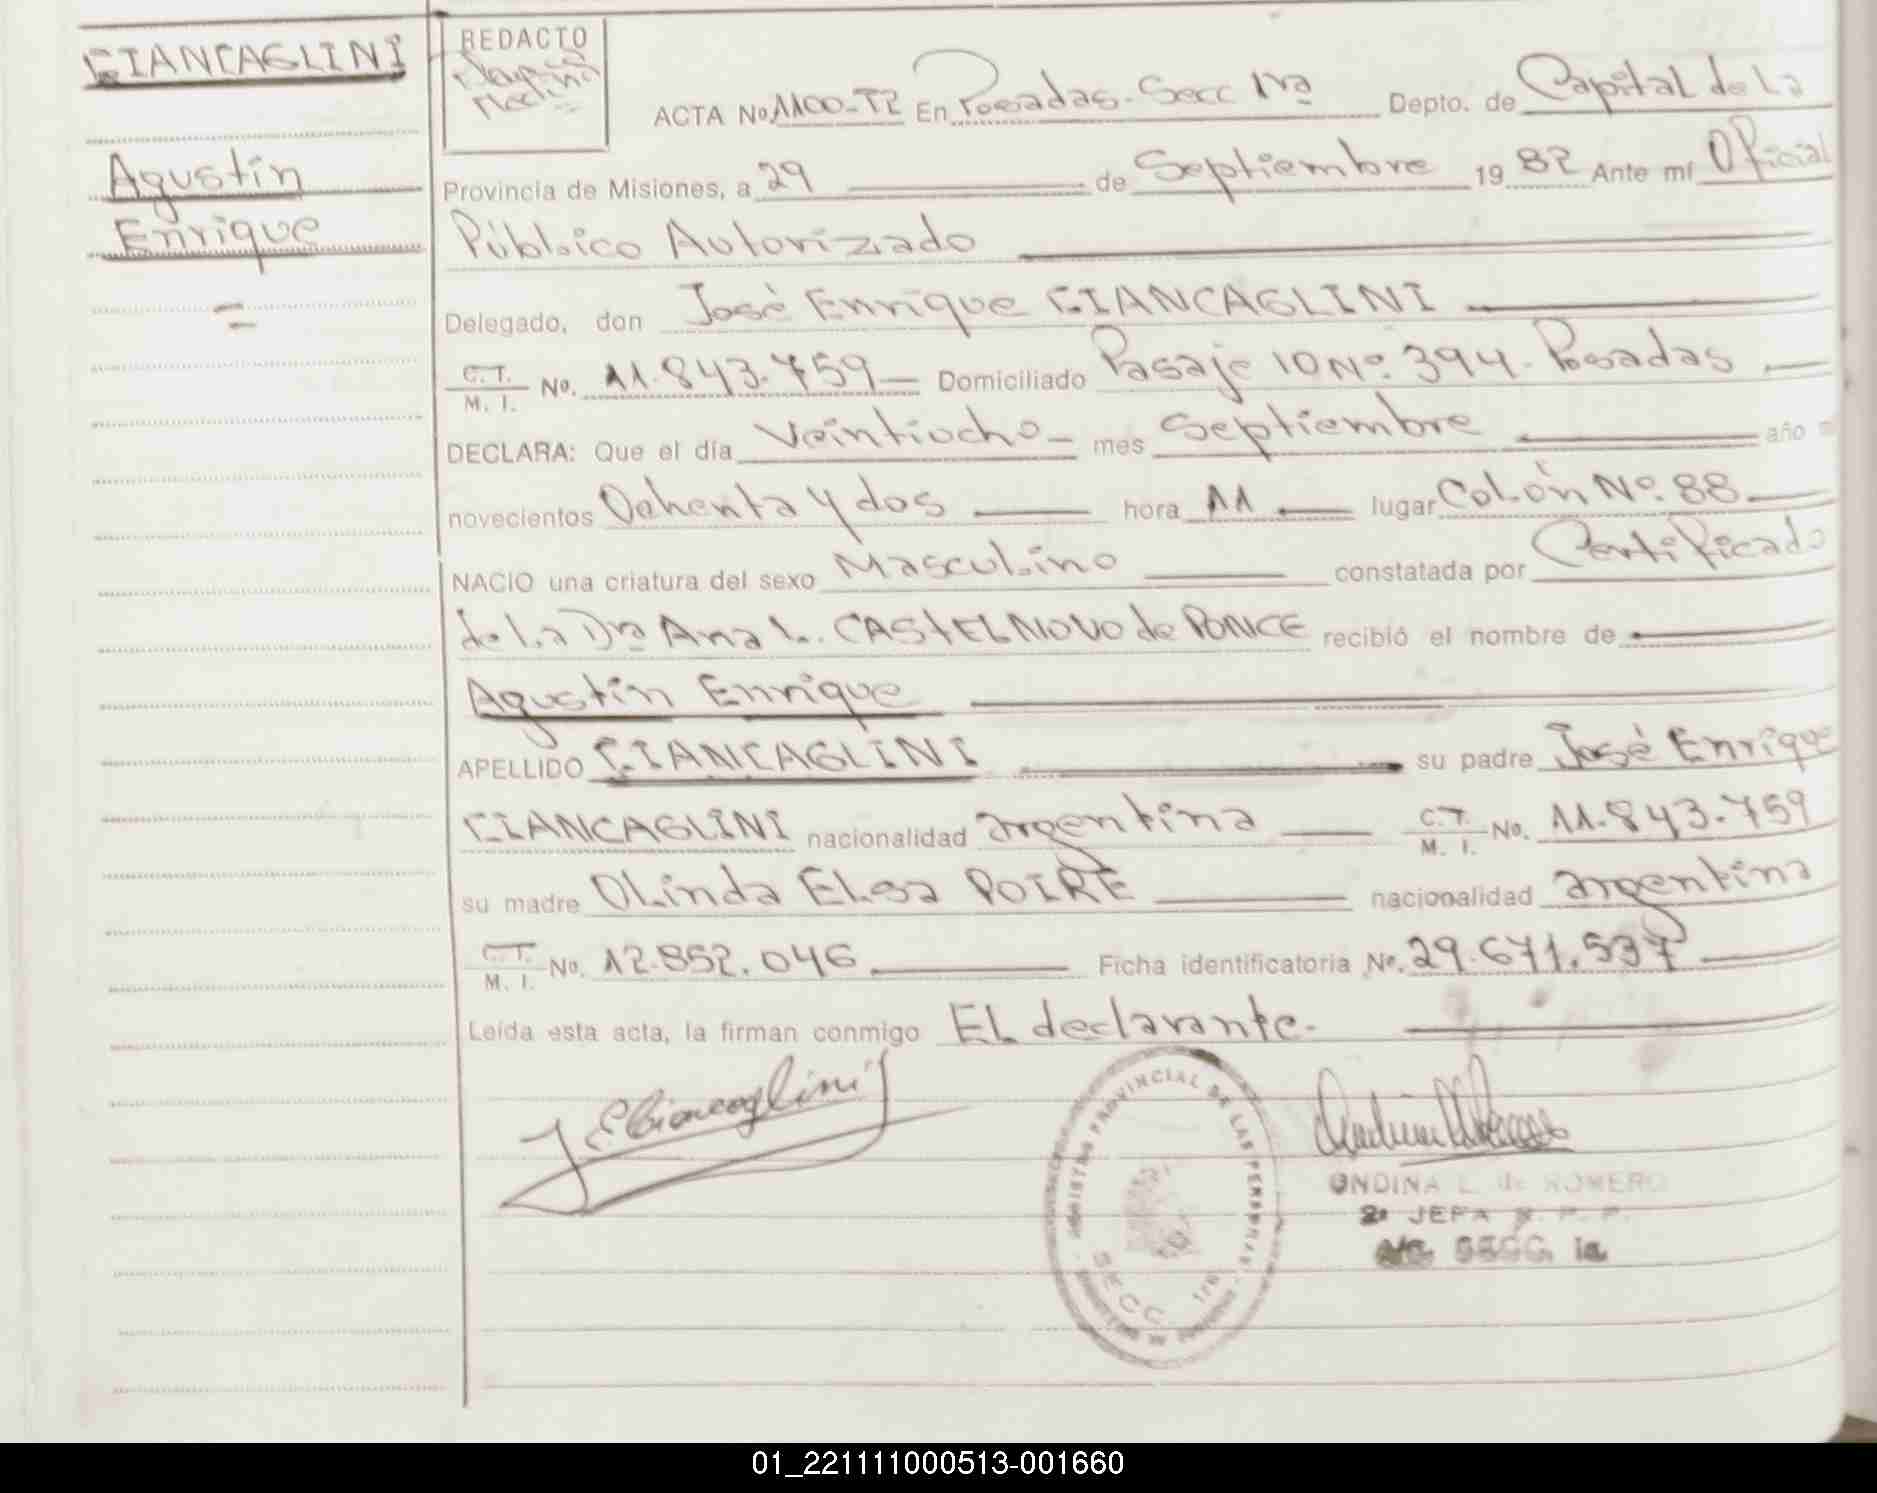 GIANCAGLINI
Agustín
Enrique
REDACTO
Medina
ACTA No. 1100-T2 En Posadas - Secc 1ra Depto. de Capital de La
Provincia de Misiones, a 29 de Septiembre 1982 Ante mí Oficial
Público Autorizado
Delegado, don José Enrique GIANCAGLINI
C.T.
M. I. No. 11.843.759 Domiciliado Pasaje 10 Nº 394 - Posadas
DECLARA: Que el día Veintiocho mes Septiembre año
novecientos Ochenta y dos hora 11 lugar Colón Nº 88
NACIO una criatura del sexo Masculino constatada por Certificado
de La Dra Ana L. CASTELNOVO de PONCE recibió el nombre de
Agustín Enrique
APELLIDO GIANCAGLINI su padre José Enrique
GIANCAGLINI nacionalidad argentina C.T.
M. I. No. 11.843.759
su madre Olinda Elsa POIRE nacionalidad argentina
C.T.
M. I. No. 12.852.046 Ficha identificatoria No. 29.671.537
Leída esta acta, la firman conmigo El declarante.
J E Giancaglini
REGISTRO PROVINCIAL DE LAS PERSONAS
SECC 1ra
ONDINA L. de ROMERO
2º JEFA R. P. P.
A/C. SECC. 1a.
01_221111000513-001660